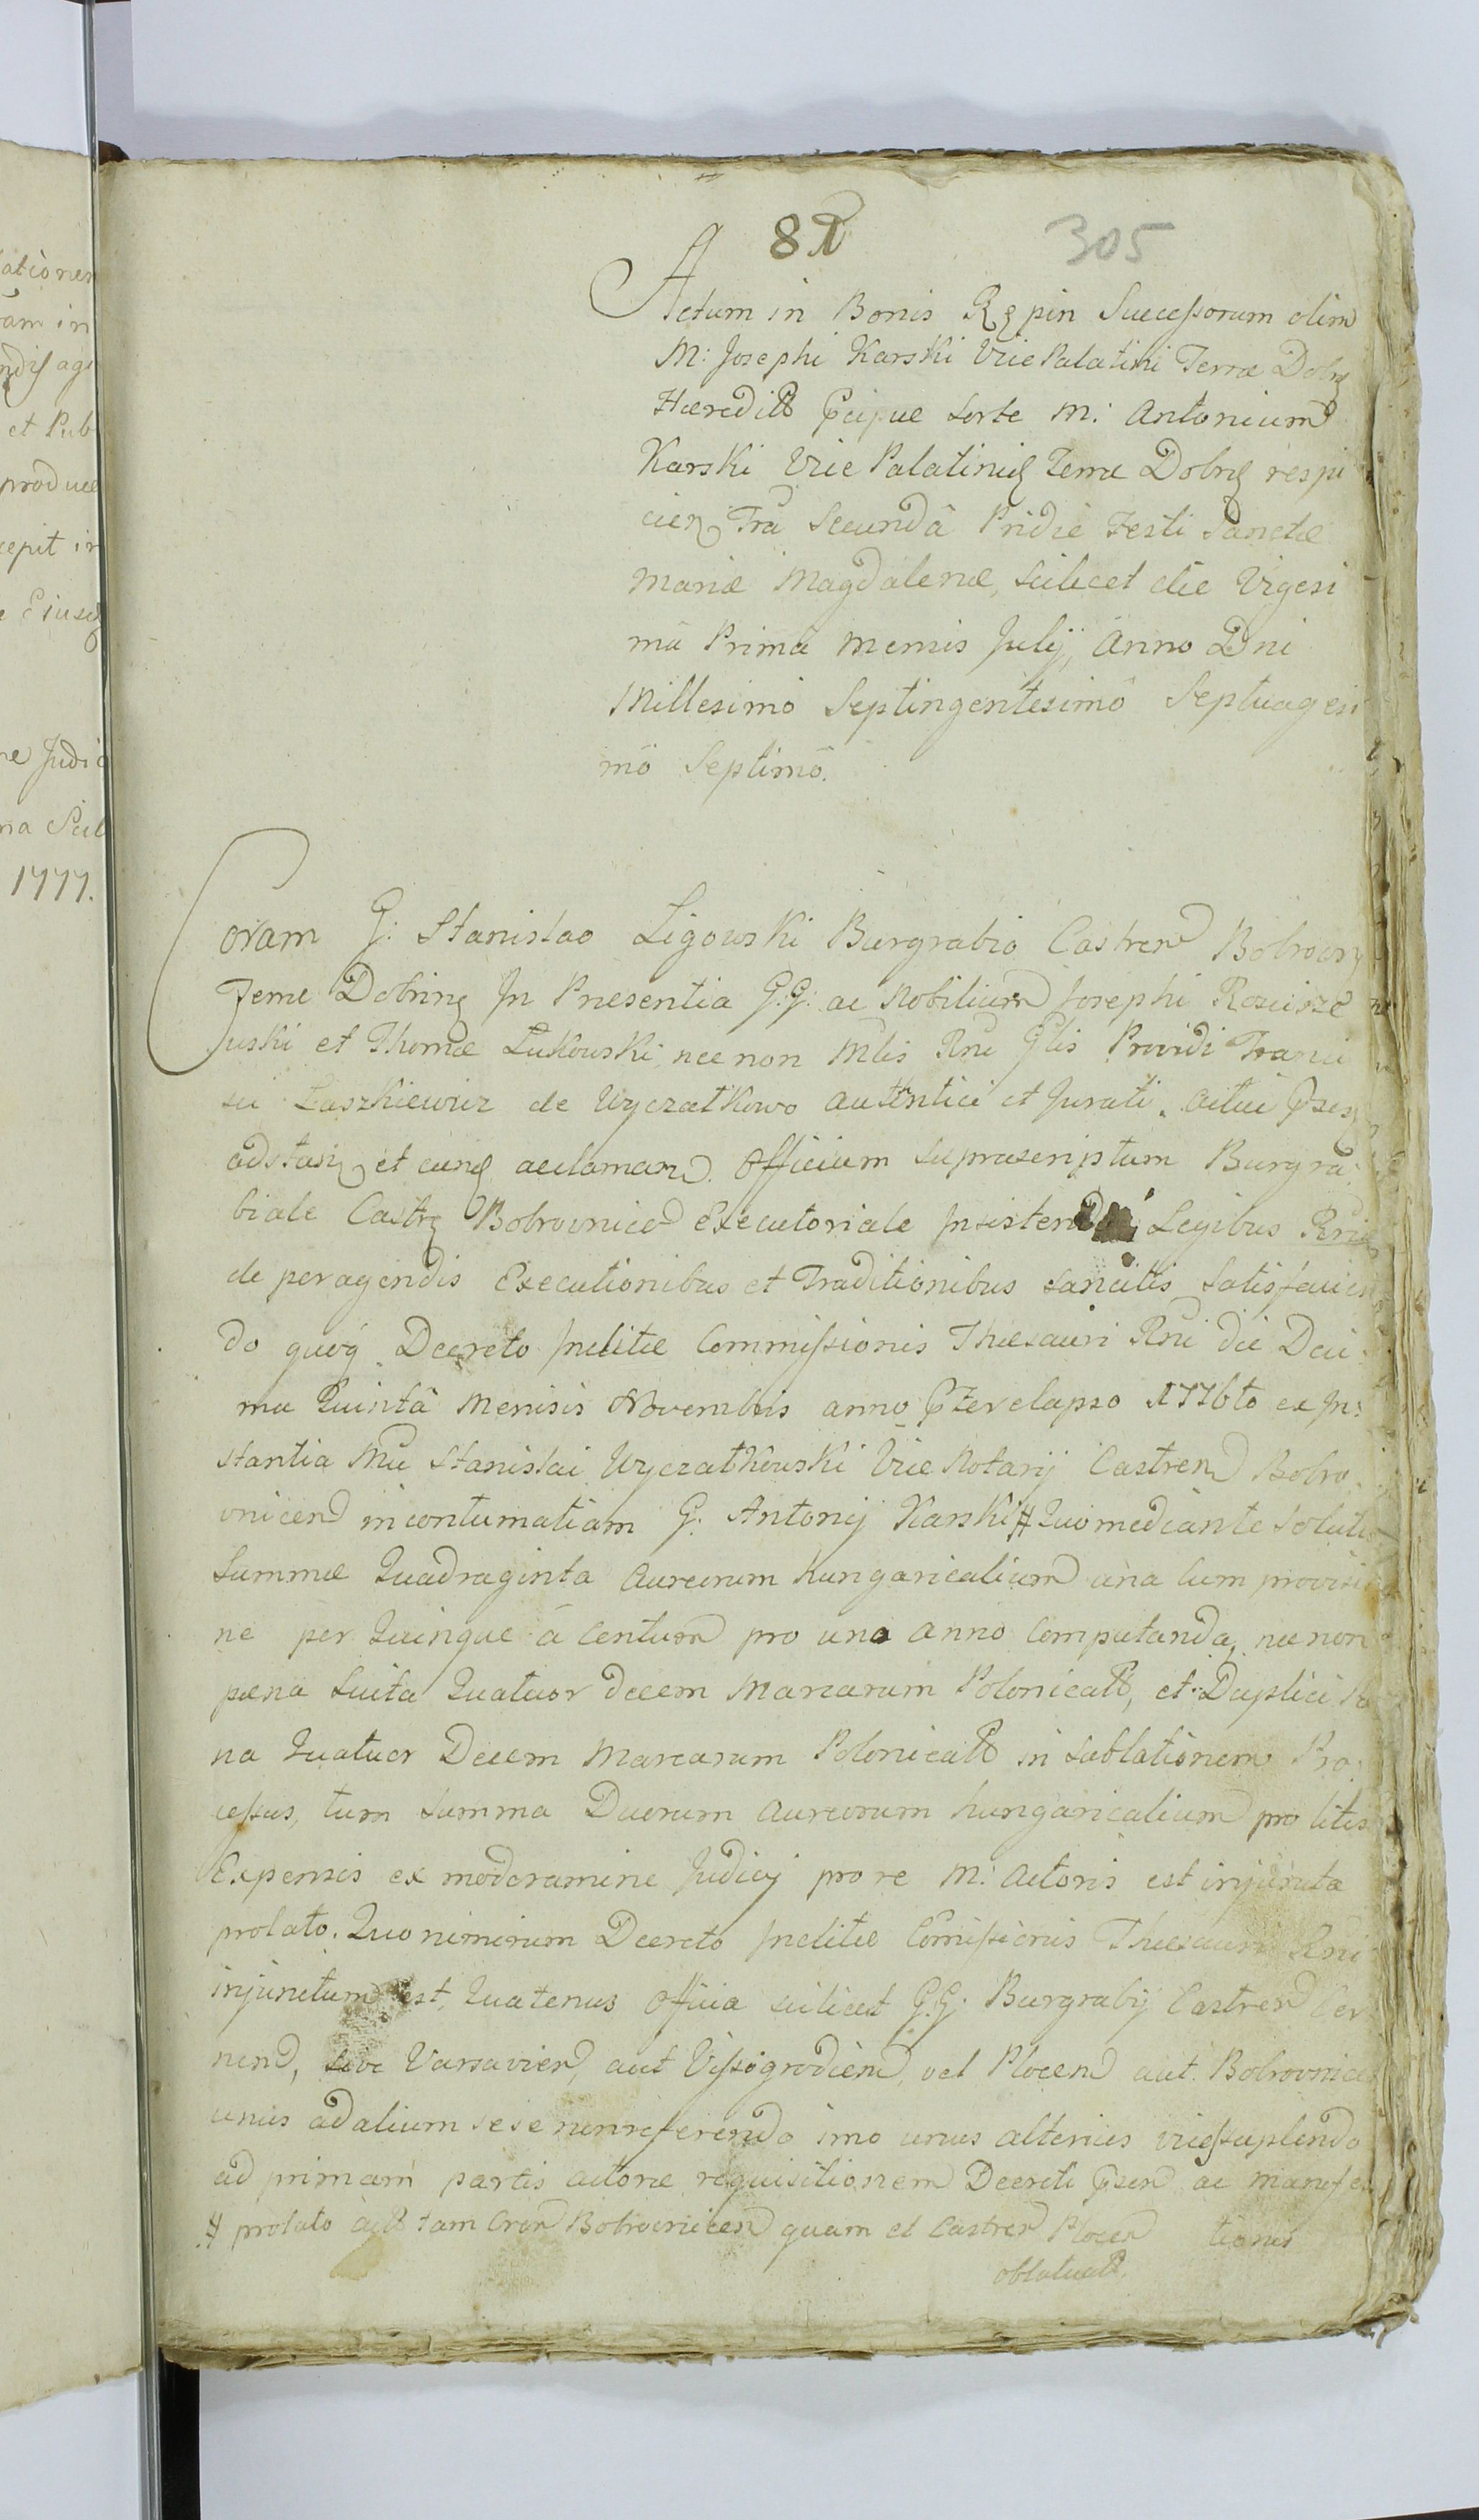 ationem
am in
ndis age
et Pub
produce
cepit in
e Eiusdem
re Judic
na Scil
1777.
81
305
Actum in Bonis Rępin Successorum olim
M: Josephi Karski Vice Palatini Terræ Dobrz
Hæredit Pcipue sorte M: Antonium
Karski Vice Palatinid Terræ Dobrz respi
cien Fria Secundâ Pridie Festi Sanctæ
Mariæ Magdalenæ, scilicet die Vigesi
mâ Primâ Mensis Julij, Anno Dni
Millesimô Septingentesimô Septuagesi
mô Septimô.
Coram G: Stanislao Ligowski Burgrabio Castren Bobrown
Terræ Dobrinz In Præsentia G.G: ac Nobilium Josephi Roscisze
wski et Thomæ Łukowski, nec non Mlis Rni Glis Providi Franci
sci Laszkiewicz de Wyczatkowo autentici et Jurati. actui Psen
adstan et eund acclaman Officium suprascriptum Burgra:
biale Castr Bobrovnicen Executoriale Insistendo Legibus Rni
de peragendis Executionibus et Traditionibus sancitis satisfacien
do quoq Decreto Inclitæ Commissionis Thesauri Rni die Deci
ma Quintâ Mensis Novembris anno Pterelapso 1776to ex In:
stantia Mci Stanislai Wyczatkowski Vice Notarij Castren Bobro
vnicen in contumatiam G: Antonij Karski # Quo mediante Solutio
Summæ Quadraginta Aureorum hungaricalium una cum provisio
ne per Quinque â Centum pro uno anno Computanda, nec non
pæna Luita Quatuor decem Marcarum Polonical, et Duplici Pæ
na Quatuor Decem Marcarum Polonical in sublationem Pro
cessus, tum Summa Duorum Aureorum hungaricalium pro litis
Expensis ex moderamine Judicij pro re M: Actoris est injuncta
prolato. Quo nimirum Decreto Inclitæ Comissionis Thesauri Rni
injunctum est, Quatenus Officia scilicet G.G: Burgrabij Castren Cer
nen, sive Varsavien, aut Vissogrodien, vel Plocen aut Bobrovnicen
unus ad alium sese non referendo imo unus alterius vices suplendo
ad primam partis actoræ requisitionem Decreti Psen ac manifes
# prolato act tam Cren Bobrovnicen quam et Castren Plocen
tionis
oblatuat.